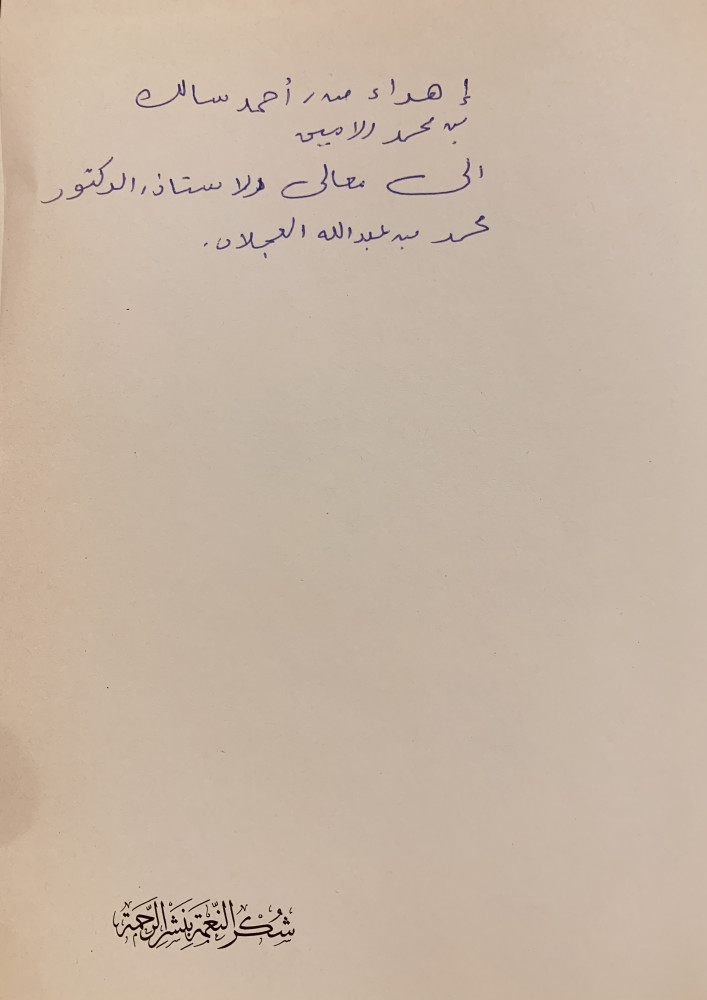 إهداء من أحمد سالك
بن محمد الامين
الى معالى الاستاذ الدكتور
محمد بن عبدالله العجلان.
شُكْرُ النِّعْمَةِ بِنَشْرِ الرَّحْمَةِ